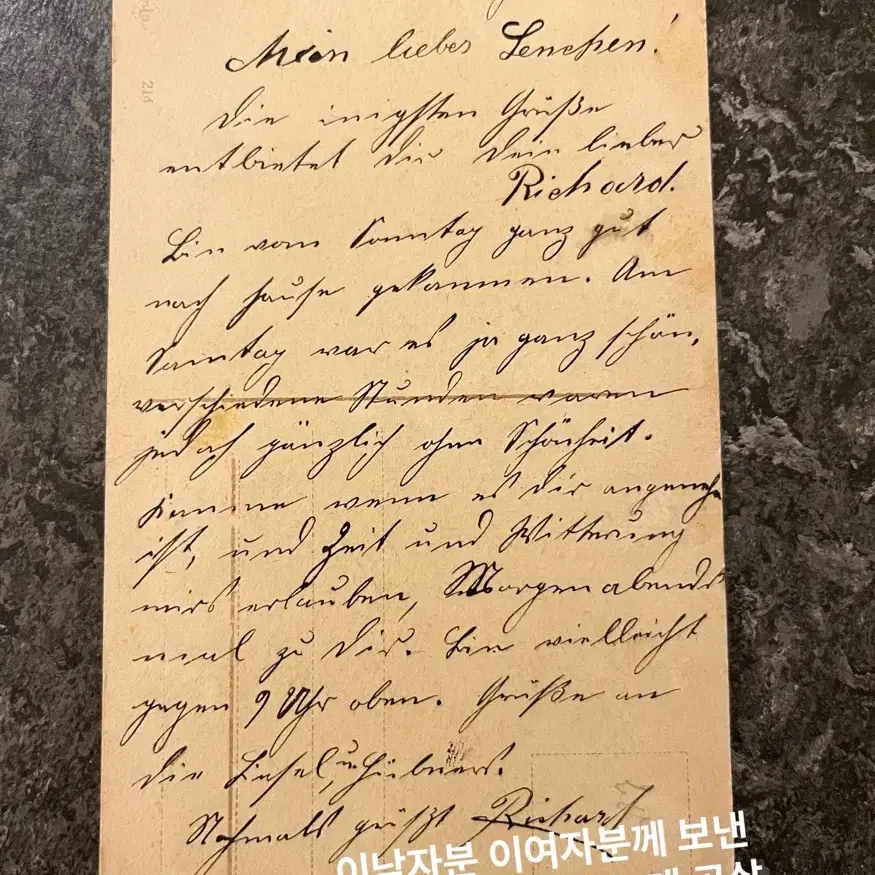 214
Mein liebes Lenchen!
Die inigsten Grüße
entbietet dir dein lieber
Richard.
Bin vom Sonntag ganz gut
nach hause gekommen. Am
Sonntag war es ja ganz schön,
verschiedene Stunden waren
jedoch gänzlich ohne Schönheit.
Komme wenn es dir angenehm
ist, und Zeit und Witterung
mirs erlauben, Morgen abends
mal zu dir. Bin vielleicht
gegen 9 Uhr oben. Grüße an
die Liesel, u. Hübners.
Nochmals grüßt Richard
이남자분 이여자분께 보낸